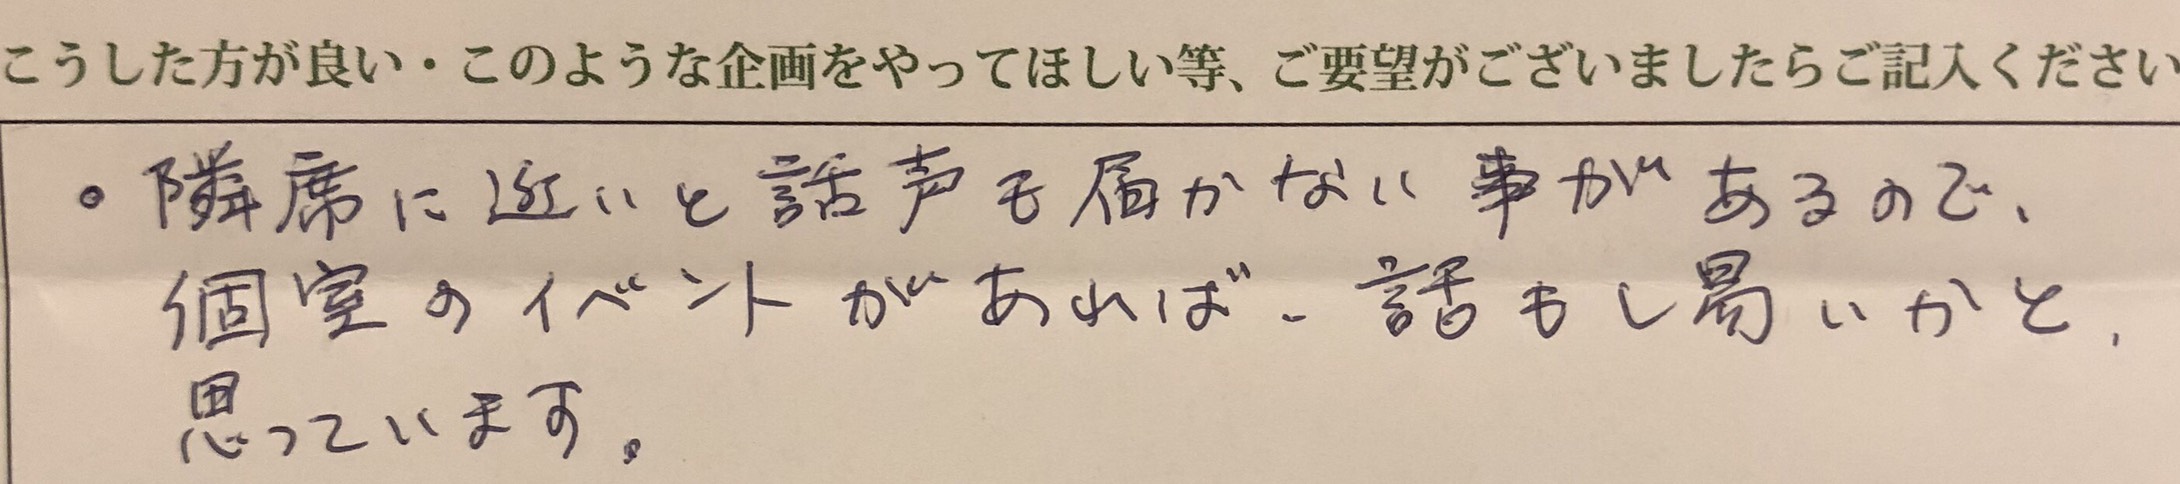 こうした方が良い・このような企画をやってほしい等、ご要望がございましたらご記入ください
・隣席に近いと話声も届かない事があるので、
個室のイベントがあれば、話もし易いかと、
思っています。